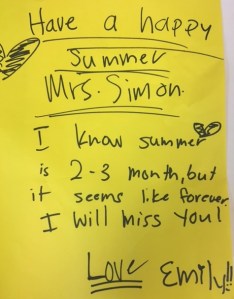 Have a happy
Summer
Mrs. Simon.
I know summer
is 2-3 month, but
it seems like forever.
I will miss you!
Love Emily!!